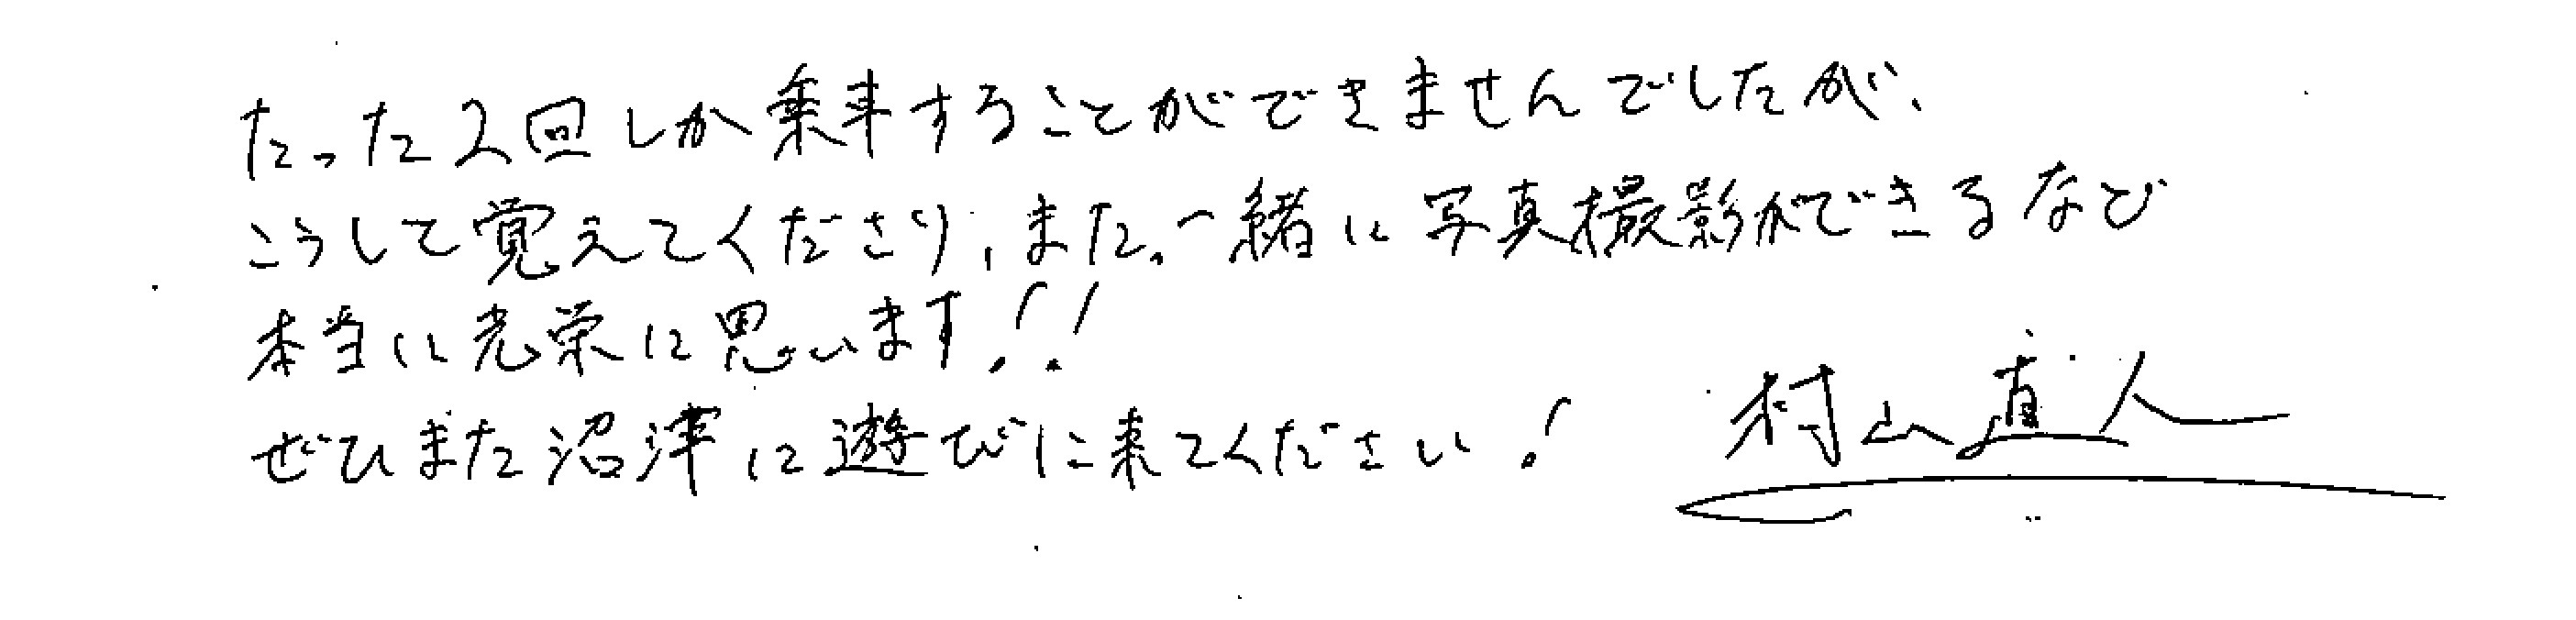 たった2回しか乗車することができませんでしたが、
こうして覚えてくださり、また、一緒に写真撮影ができるなど
本当に光栄に思います!!
ぜひまた沼津に遊びに来てください!
村山直人